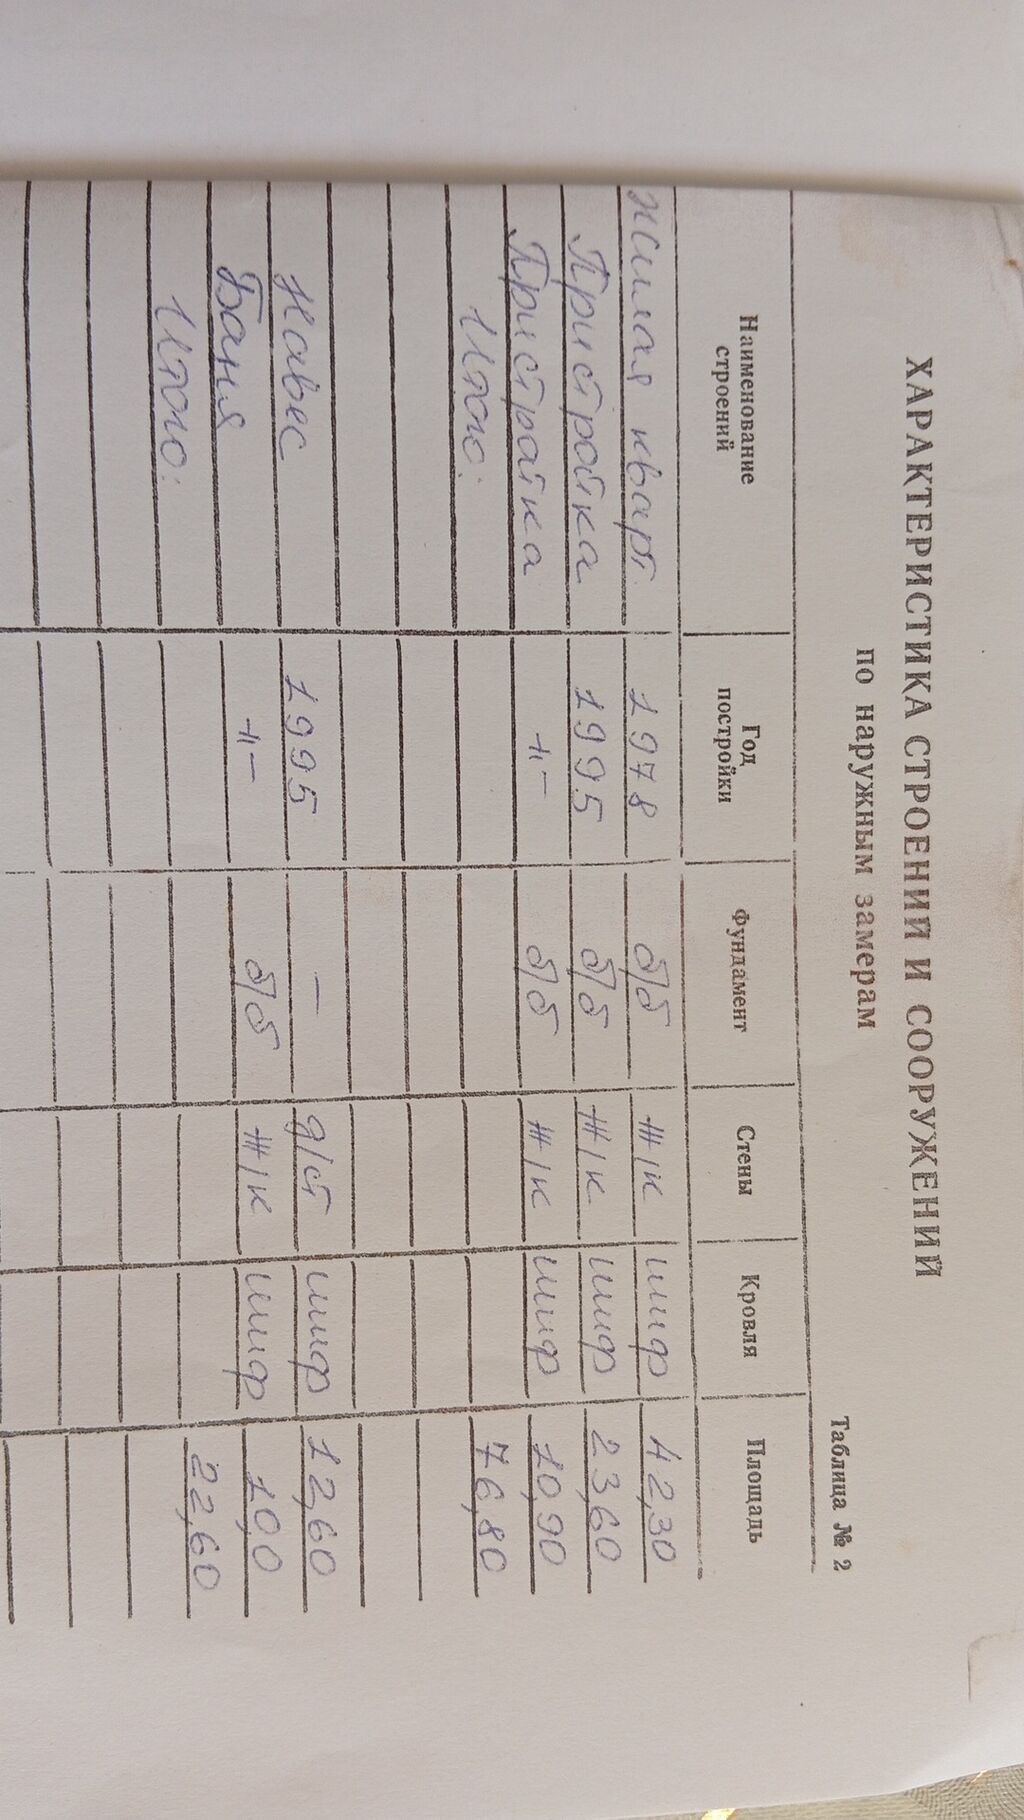 Таблица № 2
ХАРАКТЕРИСТИКА СТРОЕНИЙ И СООРУЖЕНИЙ
по наружным замерам
Наименование строений Год постройки Фундамент Стены Кровля Площадь
Жилая кварт. 1978 б/б ж/к шиф 42,30
Пристройка 1995 б/б ж/к шиф 23,60
Пристройка -//- б/б ж/к шиф 10,90
Итого: 76,80
Навес 1995 — д/ст шиф 12,60
Баня -//- б/б ж/к шиф 10,0
Итого: 22,60